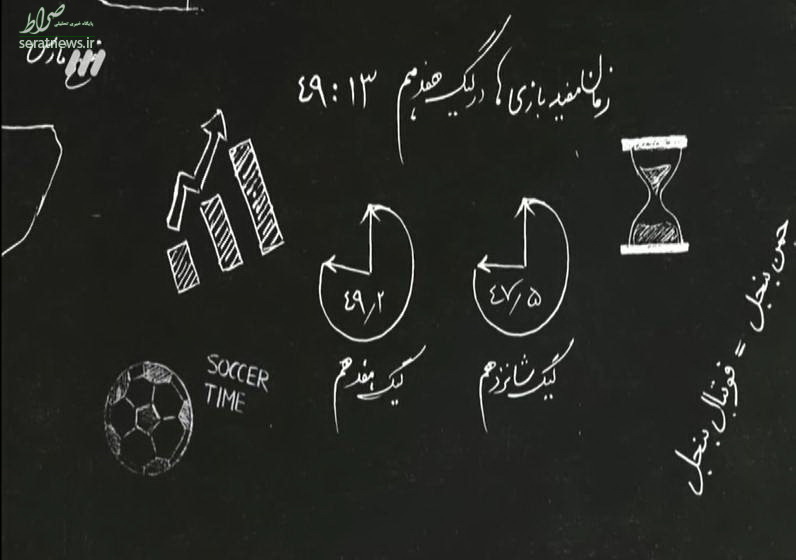 صراط
پایگاه خبری تحلیلی
seratnews.ir
زمان مفید بازی‌ها در لیگ هفدهم ۴۹:۱۳
۴۹٫۲
۴۷٫۵
لیگ هفدهم
لیگ شانزدهم
SOCCER
TIME
چمن بنجل = فوتبال بنجل